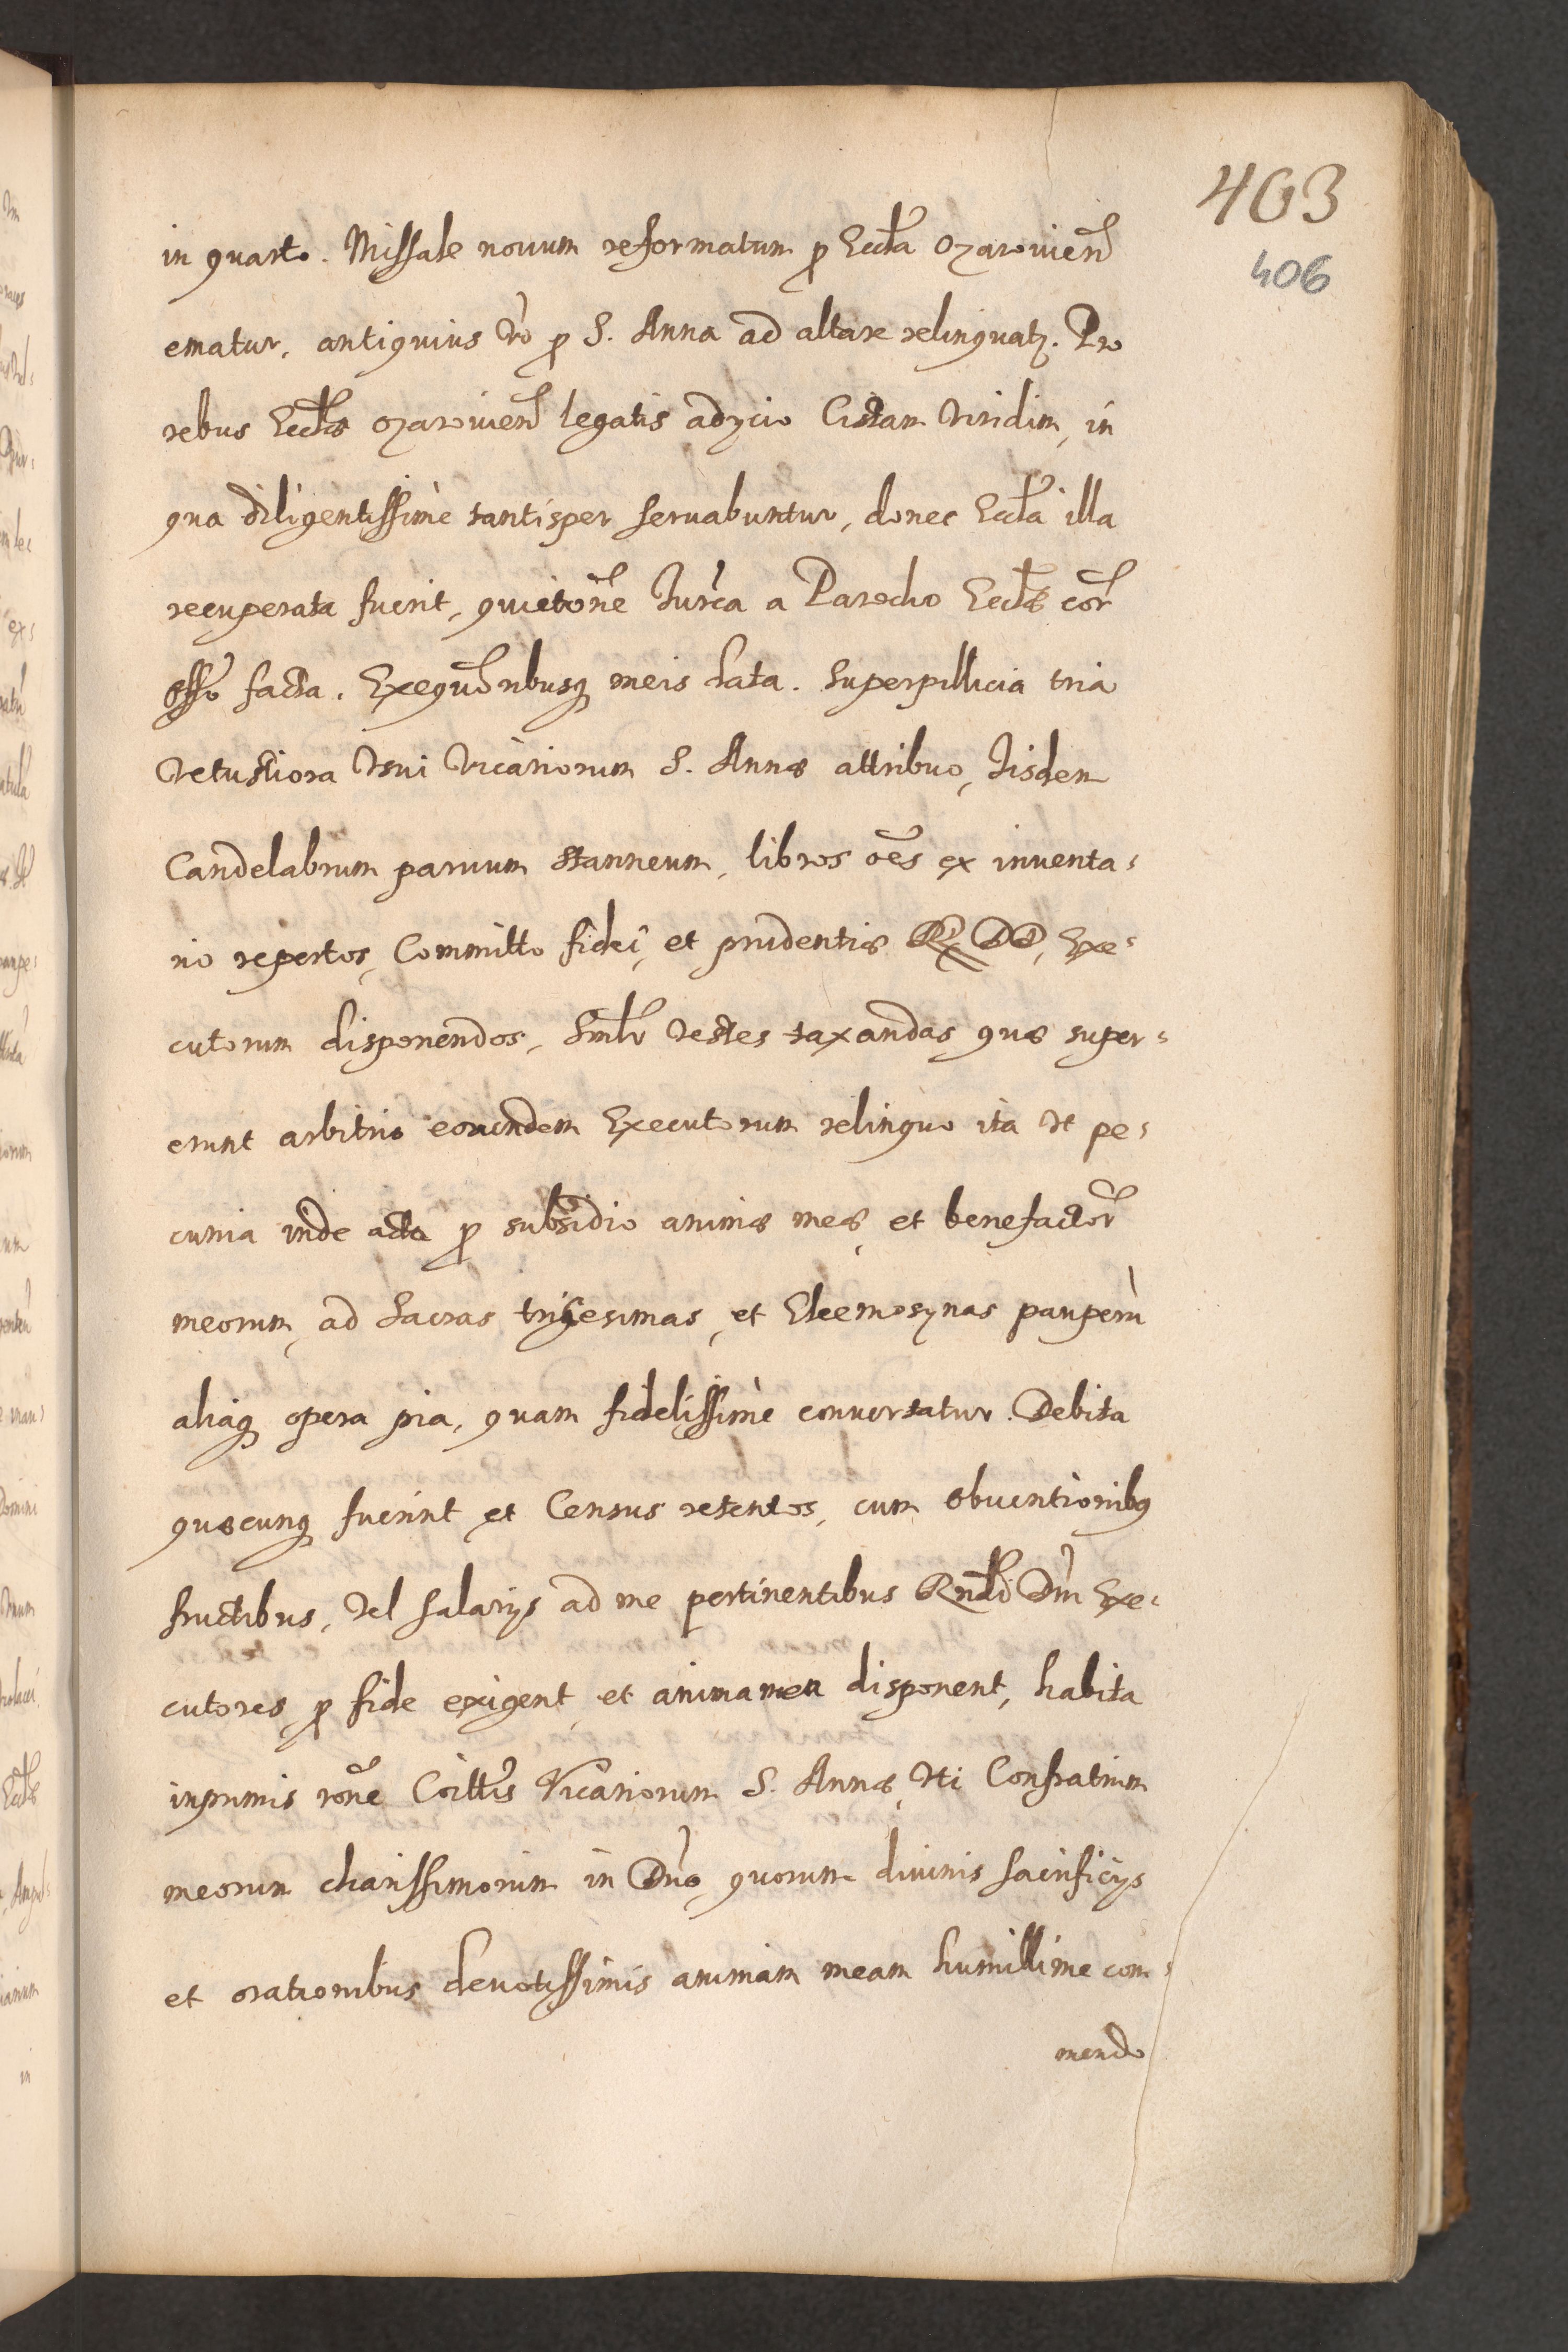 403
406
in quarto. Missale nouum reformatum ꝑ Eccła Ozarouień
ematur, antiquius v̀o ꝑ S. Anna ad altare relinquatꝫ. Pro
rebus Eccłæ ozarouień legatis adÿcio Cistam viridim, in
qua diligentissimè tantisper seruabuntur, donec Eccła illa
recuperata fuerit, quietoñe Jurča a Parocho Eccłæ cor̃
facta. meis data. Superpillicia tria
Vetustiora Vsui Vicariorum S. Annæ attribuo, Iisdem
Candelabrum paruum stanneum, libros oẽs ex inuenta⸗
rio repertos, Committo fidei, et prudentiæ RR DD, Exe⸗
cutorum disponendos, Smłr Vestes taxandas, quæ super⸗
erunt arbitrio eorundem Executorum relinquo ita Vt pe⸗
cunia inde acta ꝑ subsidio animæ meæ, et benefactor̃
meorum, ad Sacras trigesimas, et Eleemosynas pauperũ
aliaqꝫ opera pia, quam fidelissimè conuertatur. Debita
quæcunqꝫ fuerint et Census retentos, cum obuentionibꝯ
fructibus, Vel salarÿs ad me pertinentibus Rndi Dni Exe⸗
cutores ꝑ fide exigent, et anima mea disponent, habita
inprimis rõne Coittis Vicariorum S. Annæ, Vti Confratrum
meorum charissimorum in Dño, quorum diuinis Sacrificÿs
et orationibus deuotissimis animam meam humillime com⸗
mendo